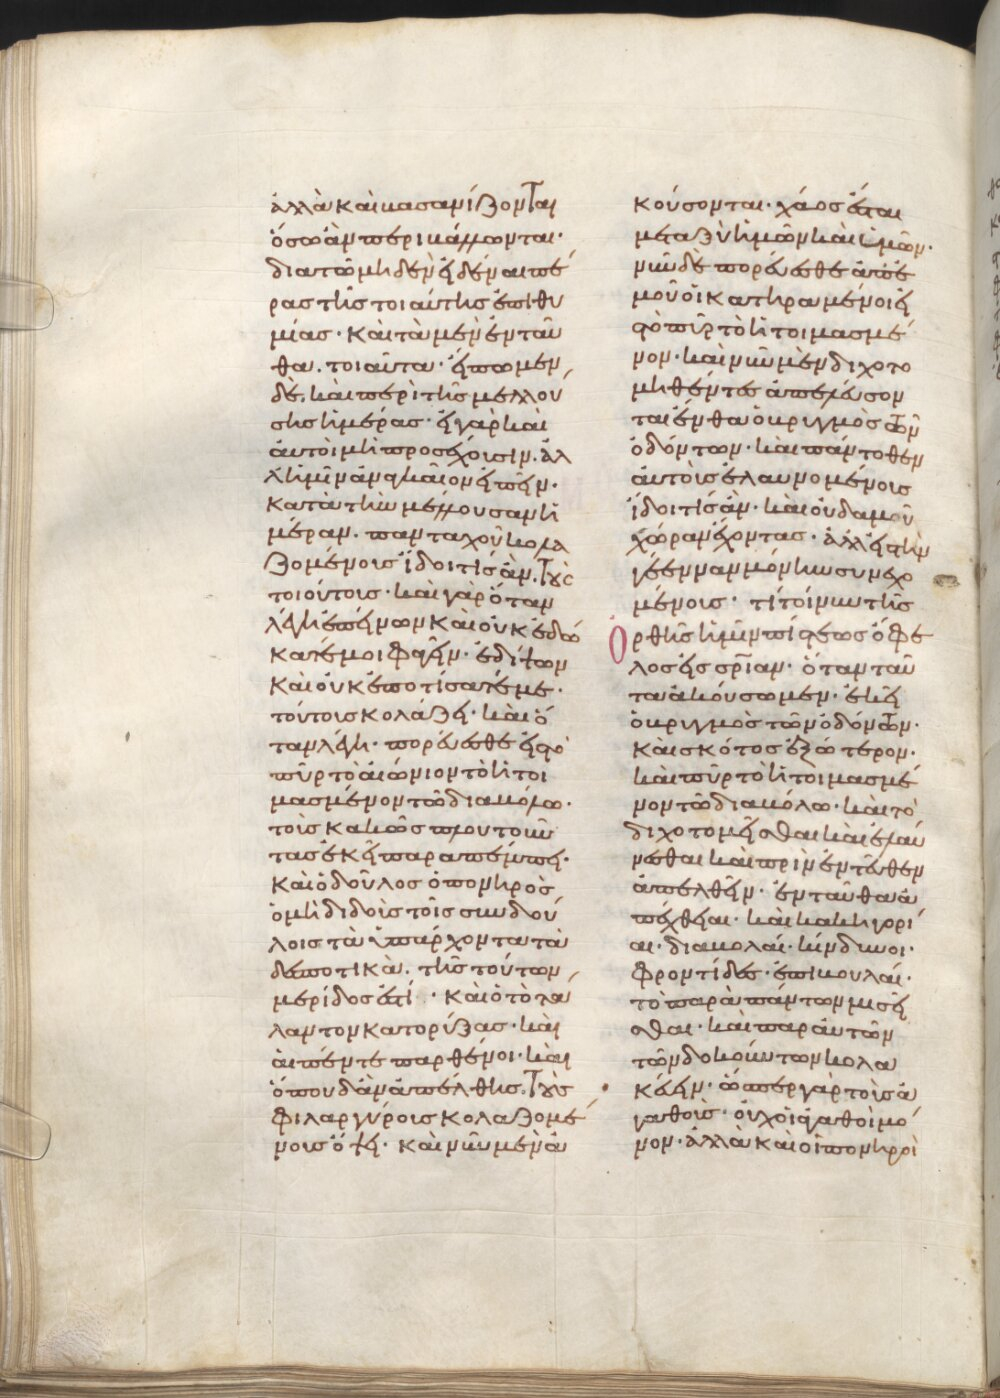 ἀλλὰ καὶ βασανίζονται
ὅσω ἂν περιβάλλωνται·
διὰ τὸ μηδὲν εἰδέναι πέ
ρας τῆς τοιαύτης ἐπιθυ
μίας· καὶ τὰ μὲν ἐνταῦ
θα. τοιαῦτα· εἴπωμεν
δὲ, καὶ περὶ τῆς μελλού
σης ἡμέρας· εἰ γὰρ καὶ
αὐτοὶ μὴ προσέχοισιν. ἀλ
λ' ἡμῖν ἀναγκαῖον εἰπεῖν·
κατὰ τὴν μέλλουσαν ἡ
μέραν. πανταχοῦ κολα
ζομένοις ἴδοι τίς ἂν. τοὺς
τοιούτους· καὶ γὰρ ὅταν
λέγη ἐπείνων καὶ οὐκ ἐδώ
κατέ μοι φαγεῖν· ἐδίψων
καὶ οὐκ ἐποτίσατέ με·
τούτοις κολάζει· καὶ ὅ
ταν λέγη· πορεύεσθε εἰς τὸ
πῦρ τὸ αἰώνιον τὸ ἡτοι
μασμένον τῶ διαβόλω·
τοῖς κακῶς πλουτοῦν
τας ἐκεῖ παραπέμπει·
καὶ ὁ δοῦλος ὁ πονηρὸς
ὁ μὴ διδοὺς τοῖς συνδού
λοις τὰ ὑπάρχοντα τὰ
δεσποτικὰ. τῆς τούτων
μερίδος ἐστί· καὶ ὁ τὸ τά
λαντον κατορύξας· καὶ
αἱ πέντε παρθένοι· καὶ
ὅπου δ' ἂν ἀπέλθης. τοὺς
φιλαργύροις κολαζομέ
νοις ὄψει· καὶ νῦν μὲν ἀ
κούσονται· χάος ἐστιν
μεταξὺ ἡμῶν καὶ ὑμῶν·
νῦν δὲ πορεύεσθε ἀπ' ἐ
μοῦ οἱ κατηραμένοι εἰ
ς τὸ πῦρ τὸ ἡτοιμασμέ
νον· καὶ νῦν μὲν διχοτο
μηθέντες ἀπελεύσον
ται ἔνθα ὁ βρυγμὸς τῶν
ὀδόντων· καὶ πάντοθεν
αὐτοὺς ἐλαυνομένοις
ἴδοι τίς ἂν· καὶ οὐδαμοῦ
χώραν ἔχοντας· ἀλλ' εἰς τὴν
γέενναν μόνην συνεχο
μένοις· τί τοίνυν τῆς
ὀρθῆς ἡμῖν πίστεως ὄφε
λος εἰς σρίαν· ὅταν ταῦ
τα ἀκούσωμεν· ἐκεῖ
ὁ βρυγμὸς τῶν ὀδόντων·
καὶ σκότος ἐξώτερον·
καὶ πῦρ τὸ ἡτοιμασμέ
νον τῶ διαβόλω· καὶ τὸ
διχοτομεῖσθαι καὶ ἐλαύ
νεσθαι καὶ πρὶν ἐντεῦθεν
ἀπελθεῖν· ἐνταῦθα ἀ
πέχθειαι· καὶ κακηγορί
αι· διαβολαί· κίνδυνοι·
φροντίδες· ἐπιβουλαί·
τὸ παρὰ πάντων μισεῖ
σθαι· καὶ παρ' αὐτῶν
τῶν δοκούντων κολα
κεύειν· ὥσπερ γὰρ τοὺς ἀ
γαθοὺς· οὐχ οἱ ἀγαθοὶ μό
νον· ἀλλὰ καὶ οἱ πονηροὶ